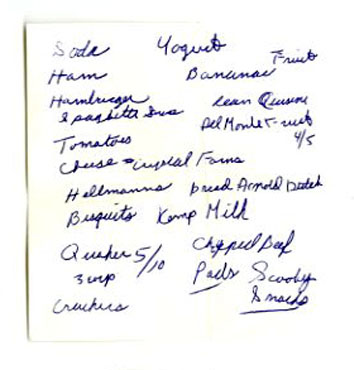 Soda Yogurt Fruit
Ham Bananas
Hamburger Lean Quisine
Spaghetti Sus Del Monte Fruit
Tomatoes 4/5
Cheese = Crystal Farms
Hellmanns bread Arnold Dutch
Bisquits Kemp Milk
Quaker 5/10 Chipped Beef
Pads Scooby
Snacks
Crackers